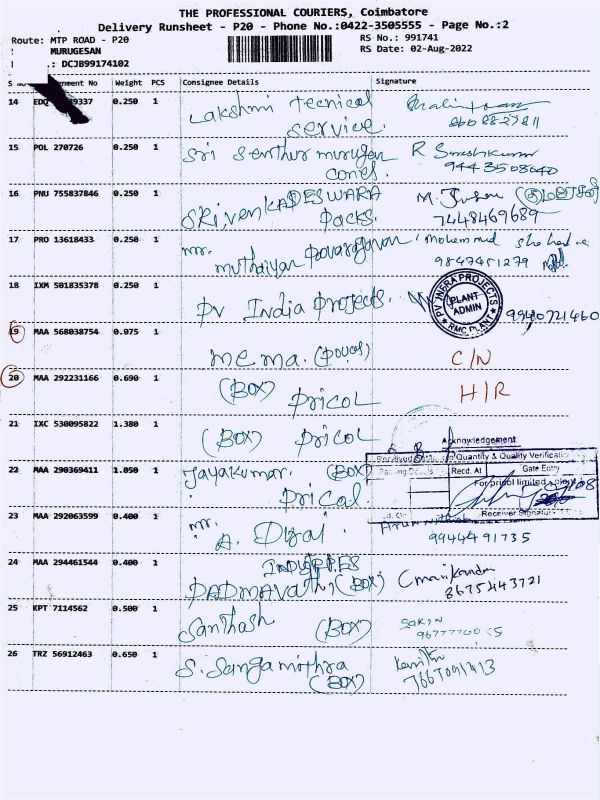 THE PROFESSIONAL COURIERS, Coimbatore
Delivery Runsheet - P20 - Phone No.:0422-3505555 - Page No.:2
Route: MTP ROAD - P20
RS No.: 991741
MURUGESAN
RS Date: 02-Aug-2022
: DCJB99174102
S No nment No Weight PCS Consignee Details Signature
14 EDQ 9337 0.250 1 Lakshmi Tecnical
Service.
8608827811
15 POL 270726 0.250 1 Sri Senthur murugan R Sureshkumar
Cones. 9443508640
16 PNU 755837846 0.250 1 SRIVENKADESWARA M.
Packs. 7448469689
17 PRO 13618433 0.250 1 mr. Mohammad
muthaiyan 9847451279
18 IXM 501835378 0.250 1 PV India Projects.
PV INFRA PROJECTS
PLANT
ADMIN
RMC PLANT
9940721460
19 MAA 568038754 0.075 1
me ma. C/N
20 MAA 292231166 0.690 1 (BOX) Pricol H/R
21 IXC 530095822 1.380 1 (BOX) Pricol
Acknowledgement
Quantity & Quality Verification
Recd. At Gate Entry
For pricol limited
Receiver Signature
22 MAA 290369411 1.050 1 Jayakumar. (BOX)
Pricol
23 MAA 292063599 0.400 1 mr.
A.
9944491735
24 MAA 294461544 0.400 1
PADMAVathi (BOX) C manikandan
8675443721
25 KPT 7114562 0.500 1 Santhosh (BOX)
26 TRZ 56912463 0.650 1 S. Sangamithra
(BOX)